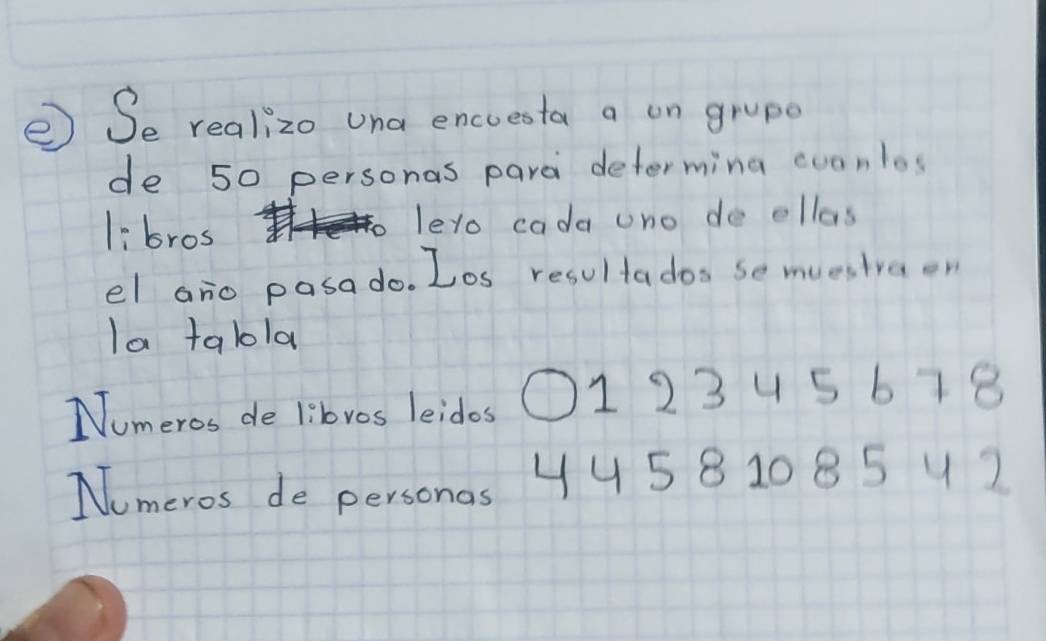 e) Se realizo una encuesta a un grupo
de 50 personas para determina cuantos
libros leyo cada uno de ellas
el año pasado. Los resultados se muestra en
la tabla
Numeros de libros leidos 0 1 2 3 4 5 6 7 8
Numeros de personas 4 4 5 8 10 8 5 4 2